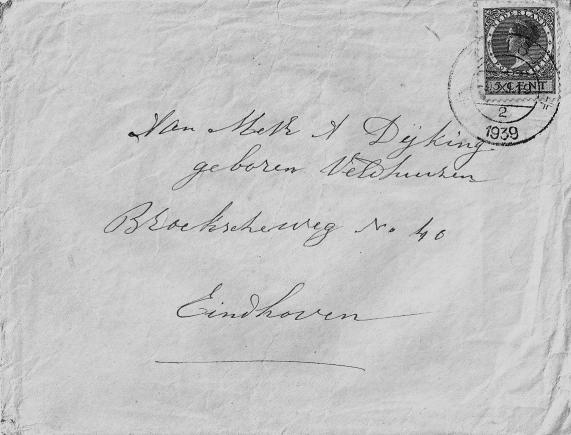 NEDERLAND
5 CENT
XI.19
2
1939
Aan Mevr A Dijking
geboren Veldhuizen
Broekscheweg No 40
Eindhoven